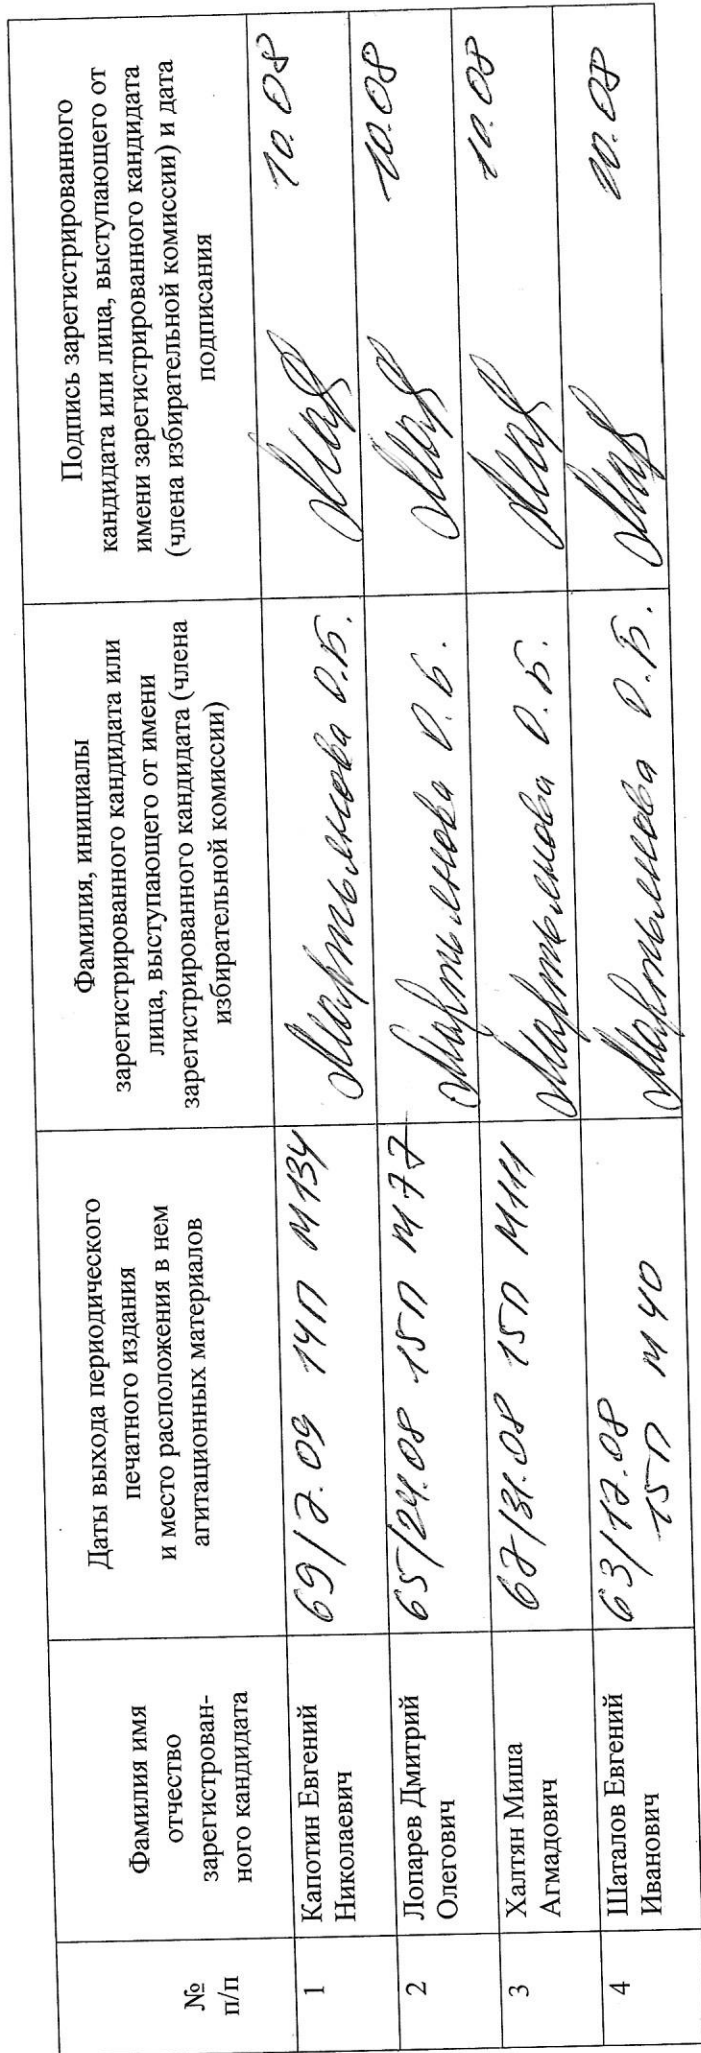 №
п/п
Фамилия имя
отчество
зарегистрирован-
ного кандидата
Даты выхода периодического
печатного издания
и место расположения в нем
агитационных материалов
Фамилия, инициалы
зарегистрированного кандидата или
лица, выступающего от имени
зарегистрированного кандидата (члена
избирательной комиссии)
Подпись зарегистрированного
кандидата или лица, выступающего от
имени зарегистрированного кандидата
(члена избирательной комиссии) и дата
подписания
1
Капотин Евгений
Николаевич
69/7.09 14П М134
Мартьянова О.Б.
10.08
2
Лопарев Дмитрий
Олегович
65/24.08 15П М77
Мартьянова О.Б.
10.08
3
Халтян Миша
Агмадович
67/31.08 15П М111
Мартьянова О.Б.
10.08
4
Шаталов Евгений
Иванович
63/17.08
15П М40
Мартьянова О.Б.
10.08